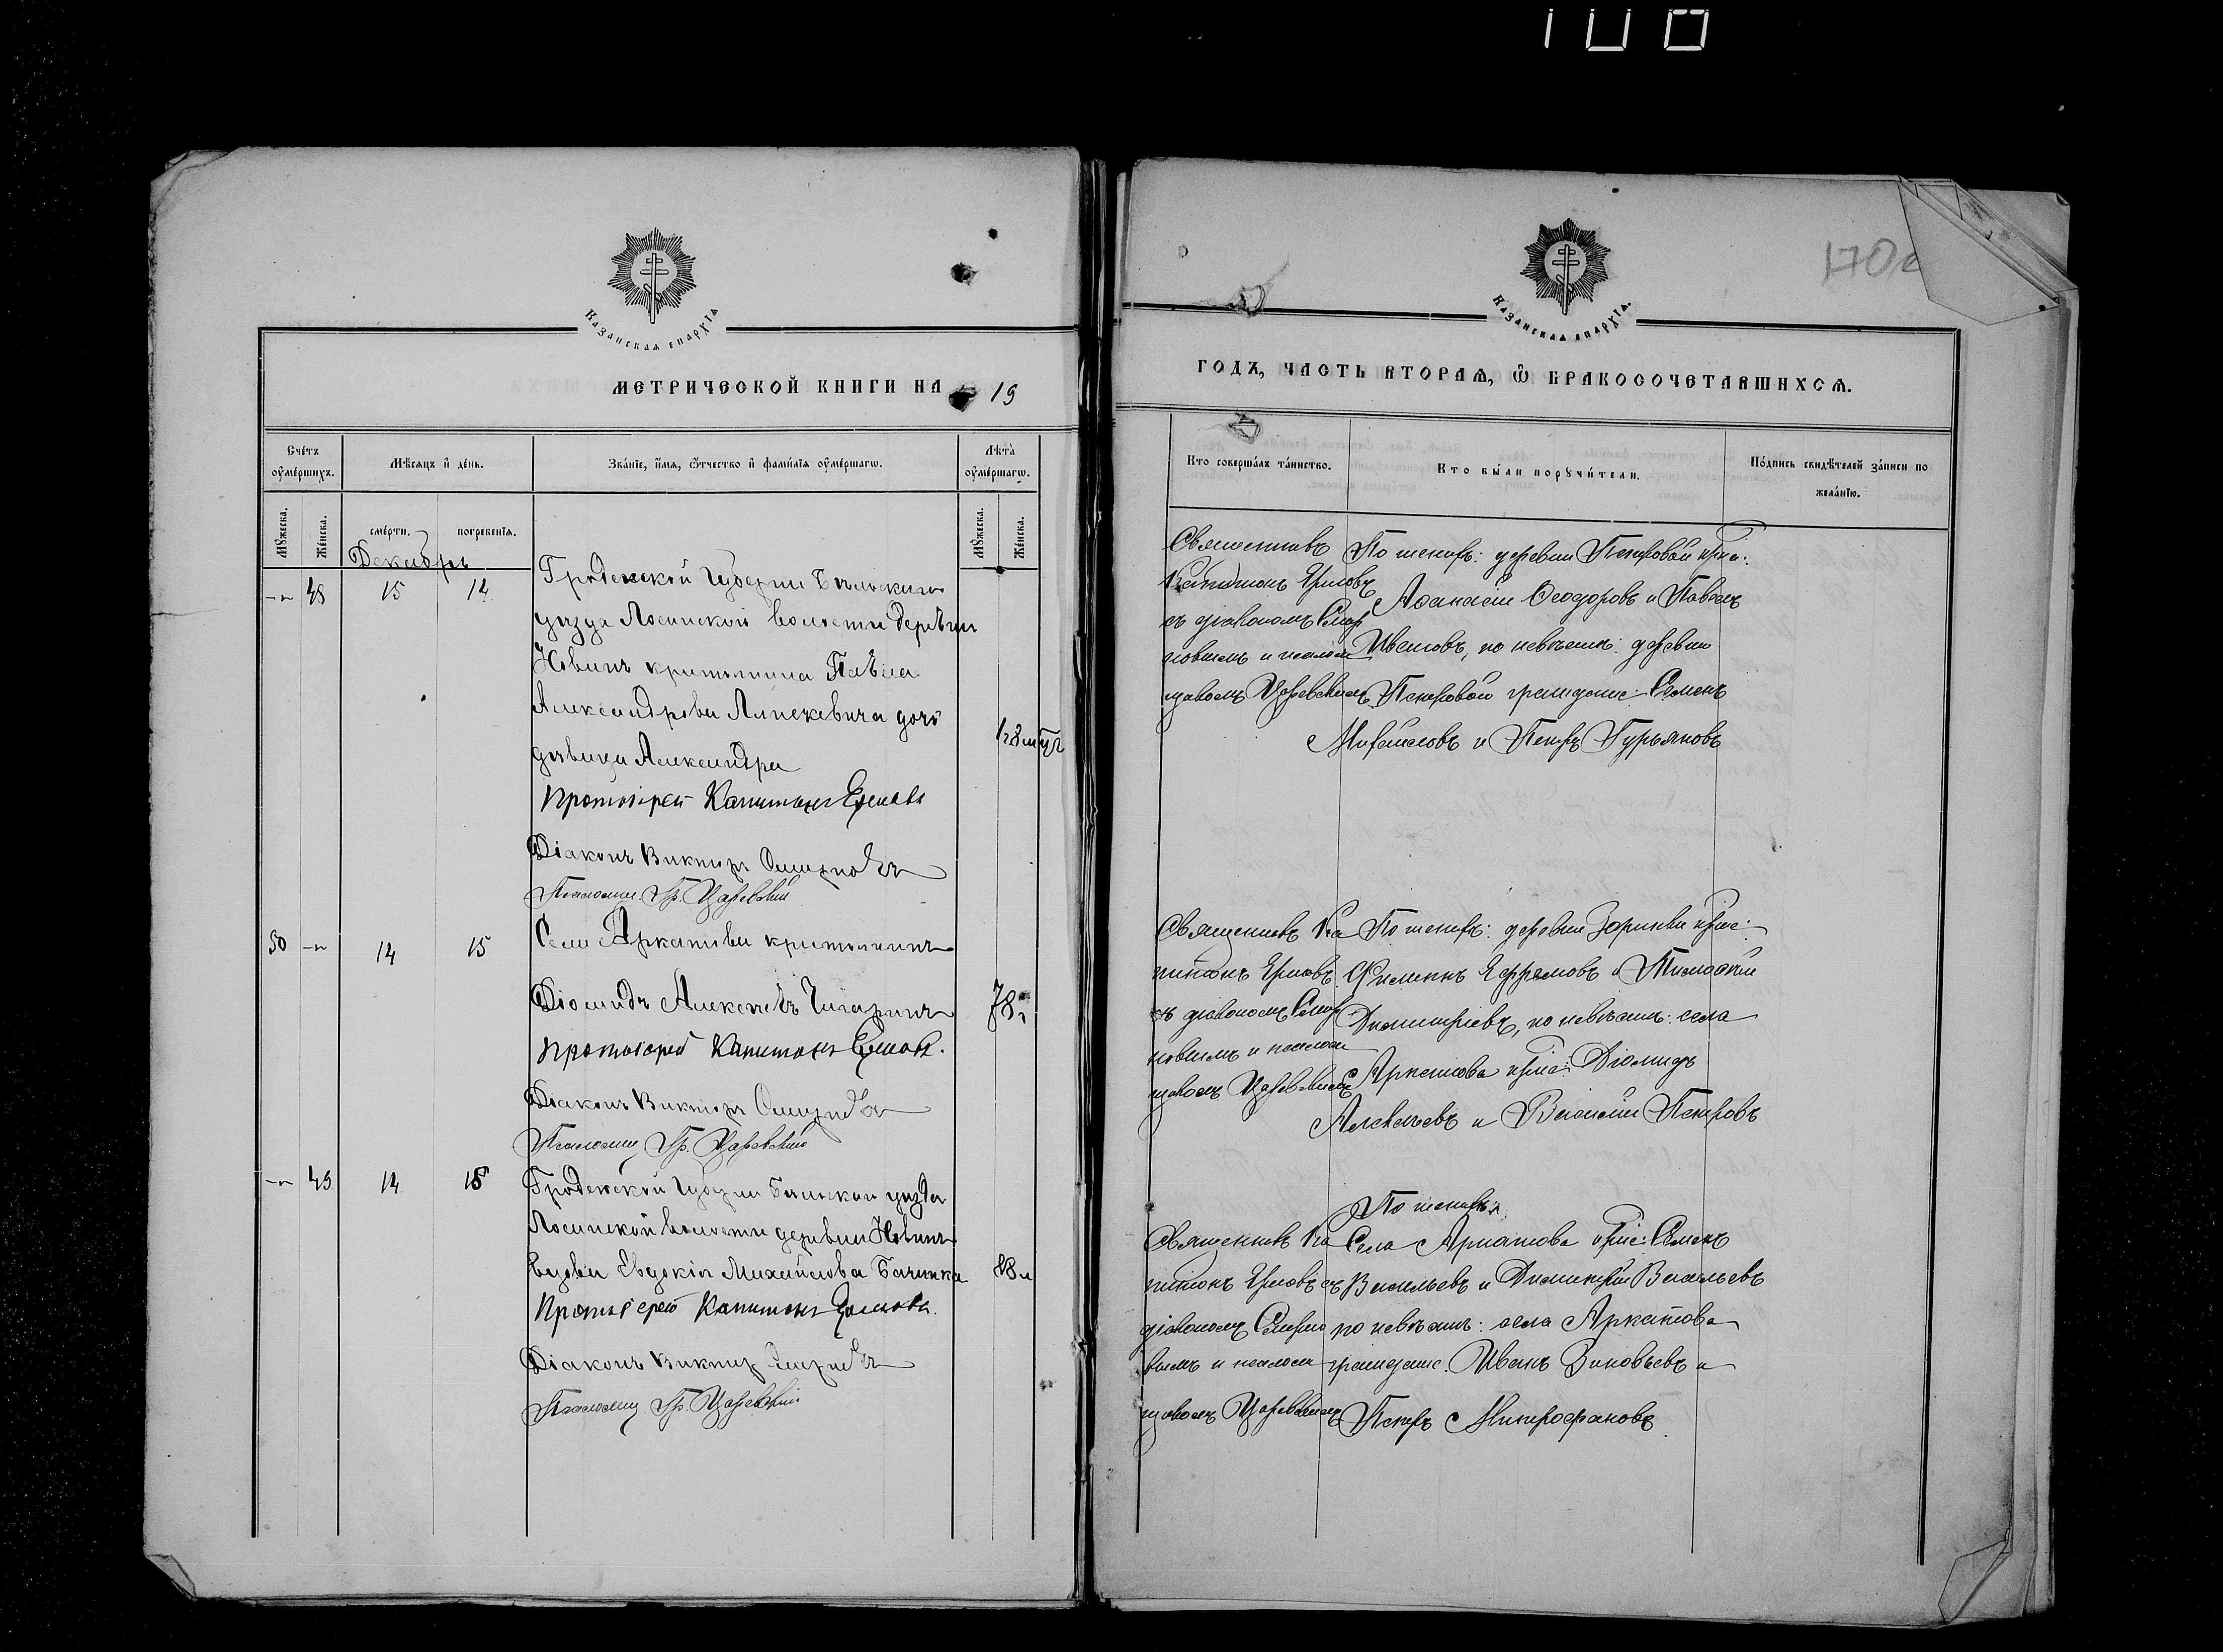 108
170
КАЗАНСКАЯ ЕПАРХІЯ
МЕТРИЧЕСКОЙ КНИГИ НА 19
Сче́тъ оумершихъ.
Мѣсяцъ и день.
Зва́ніе, и́мя, ѿтчество и фами́лія оумершагѡ.
Лѣта̀ оумершагѡ.
Мꙋжеска.
Же́нска.
сме́рти.
погребе́нія.
Мꙋжеска.
Же́нска.
Декабрь
48 15 14
Гродненской Губерніи Бѣльскаго
уѣзда Лосинской волости деревни
Новинъ крестьянина Павла
Александрова дочь
дѣвица Александра
Протоіерей Капитонъ Ермовъ
Діаконъ Викторъ Смирновъ
Псаломщ. Гр. Царевскій
50 14 15
Села Аркатова крестьянинъ
Діомидъ Алексѣевъ
78
Протоіерей Капитонъ Ермовъ.
Діаконъ Викторъ Смирновъ
Псаломщ. Гр. Царевскій
49 14 18
Гродненской Губерніи Бѣльскаго уѣзда
Лосинской волости деревни Новинъ
вдова Евдокія Михайлова
88 л
Протоіерей Капитонъ Ермовъ.
Діаконъ Викторъ Смирновъ
Псаломщ. Гр. Царевскій
КАЗАНСКАЯ ЕПАРХІЯ.
ГОДЪ, ЧАСТЬ ВТОРАЯ, Ѡ БРАКОСОЧЕТАВШИХСЯ.
Кто соверша́лъ та́инство.
Кто бы́ли порꙋчи́тели.
По́дпись свидѣтелей за́писи по жела́нію.
Священникъ
Капитонъ Ермовъ
съ діакономъ Смир
новымъ и псалом
щикомъ Царевскимъ
По жениху: деревни Петровой крес.
Аѳанасій Ѳеодоровъ и Павелъ
Ивановъ, по невѣстѣ: деревни
Петровой граждане: Семенъ
Михайловъ и Петръ Гурьяновъ
Священникъ Ка
питонъ Ермовъ
съ діакономъ Смир
новымъ и псалом
щикомъ Царевскимъ
По жениху: деревни крес:
Филиппъ Ефремовъ и Тимоѳей
Димитріевъ, по невѣстѣ: села
Аркатова крес: Діомидъ
Алексѣевъ и Василій Петровъ
Священникъ Ка
питонъ Ермовъ съ
діакономъ Смирно
вымъ и псалом
щикомъ Царевскимъ
По жениху:
Села Аркатова крес: Семенъ
Васильевъ и Димитрій Васильевъ
по невѣстѣ: села Аркатова
граждане. Иванъ Зиновьевъ и
Петръ Митрофановъ